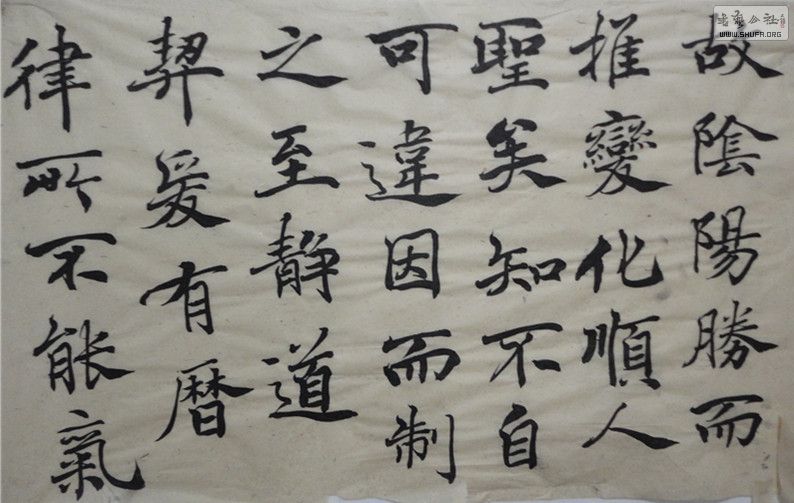 故陰陽勝而
推變化順人
聖矣知不自
可違因而制
之至静道
契爰有曆
律所不能氣
公社
WWW.SHUFA.ORG